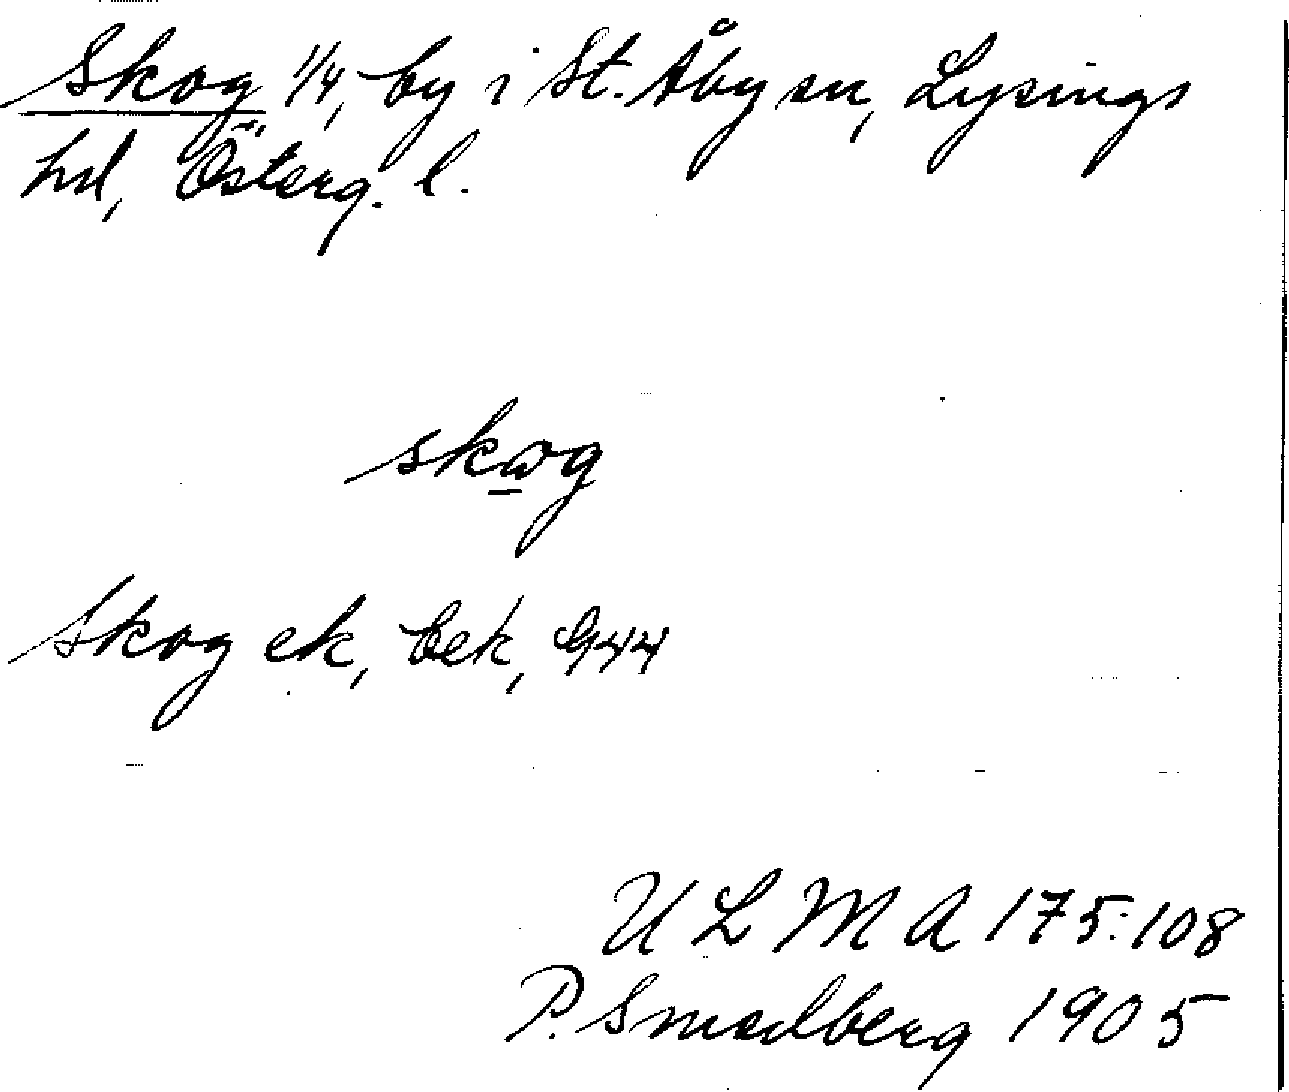 Skog 1/4, by i St. Åby sn, Lysings
hd, Österg. l.
skωg
Skog ek, bek, G44
ULMA 175:108
P. Smedberg 1905